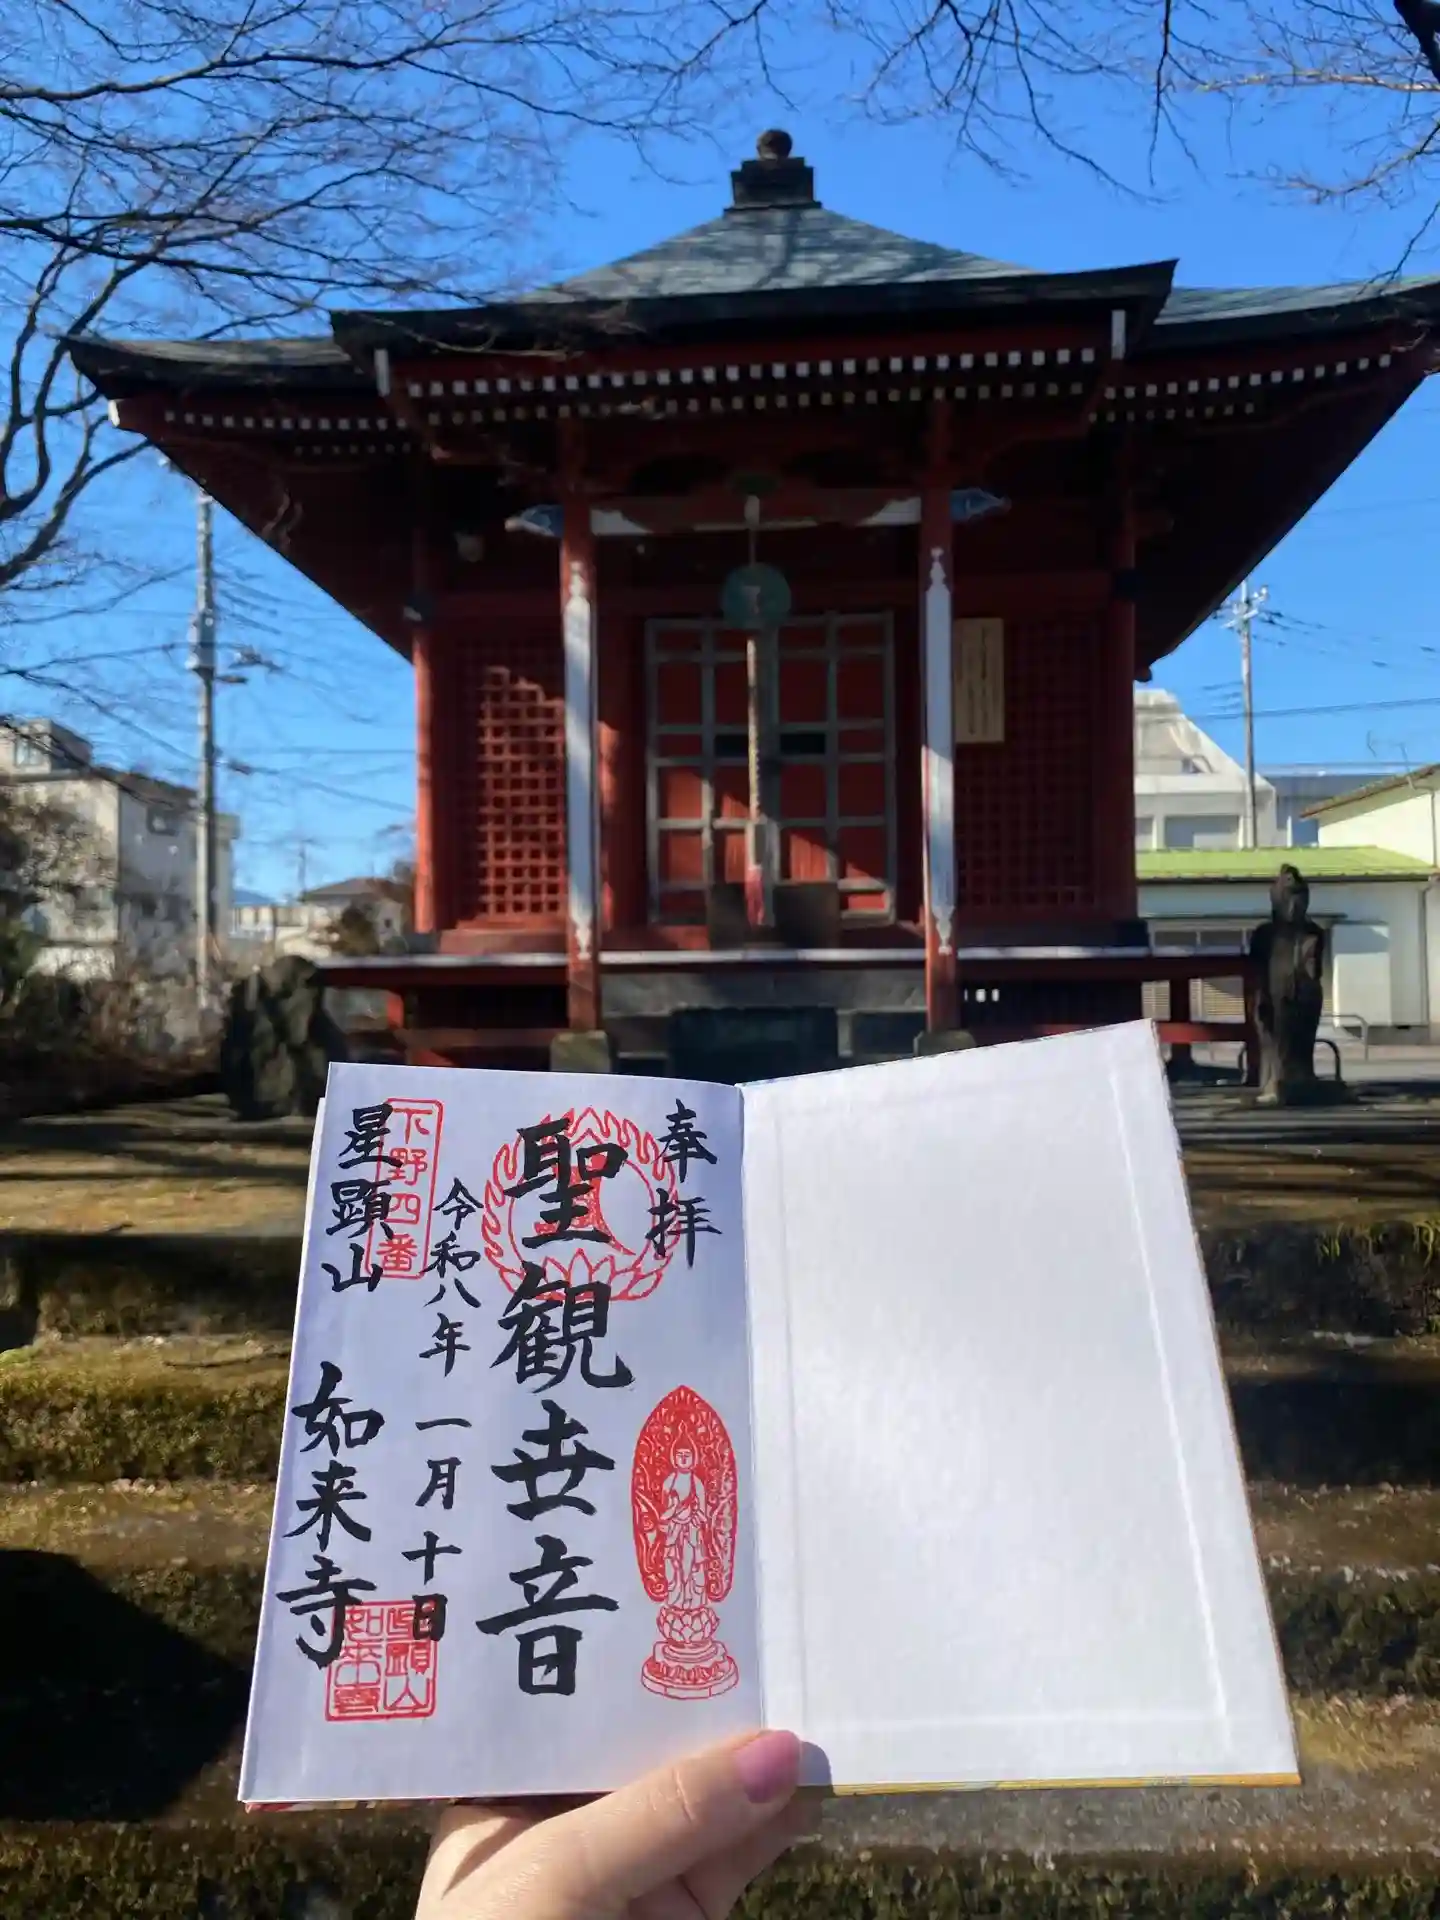 奉拝
聖観世音
令和八年一月十日
下野四番
星顕山
如来寺
星顕山
如来寺